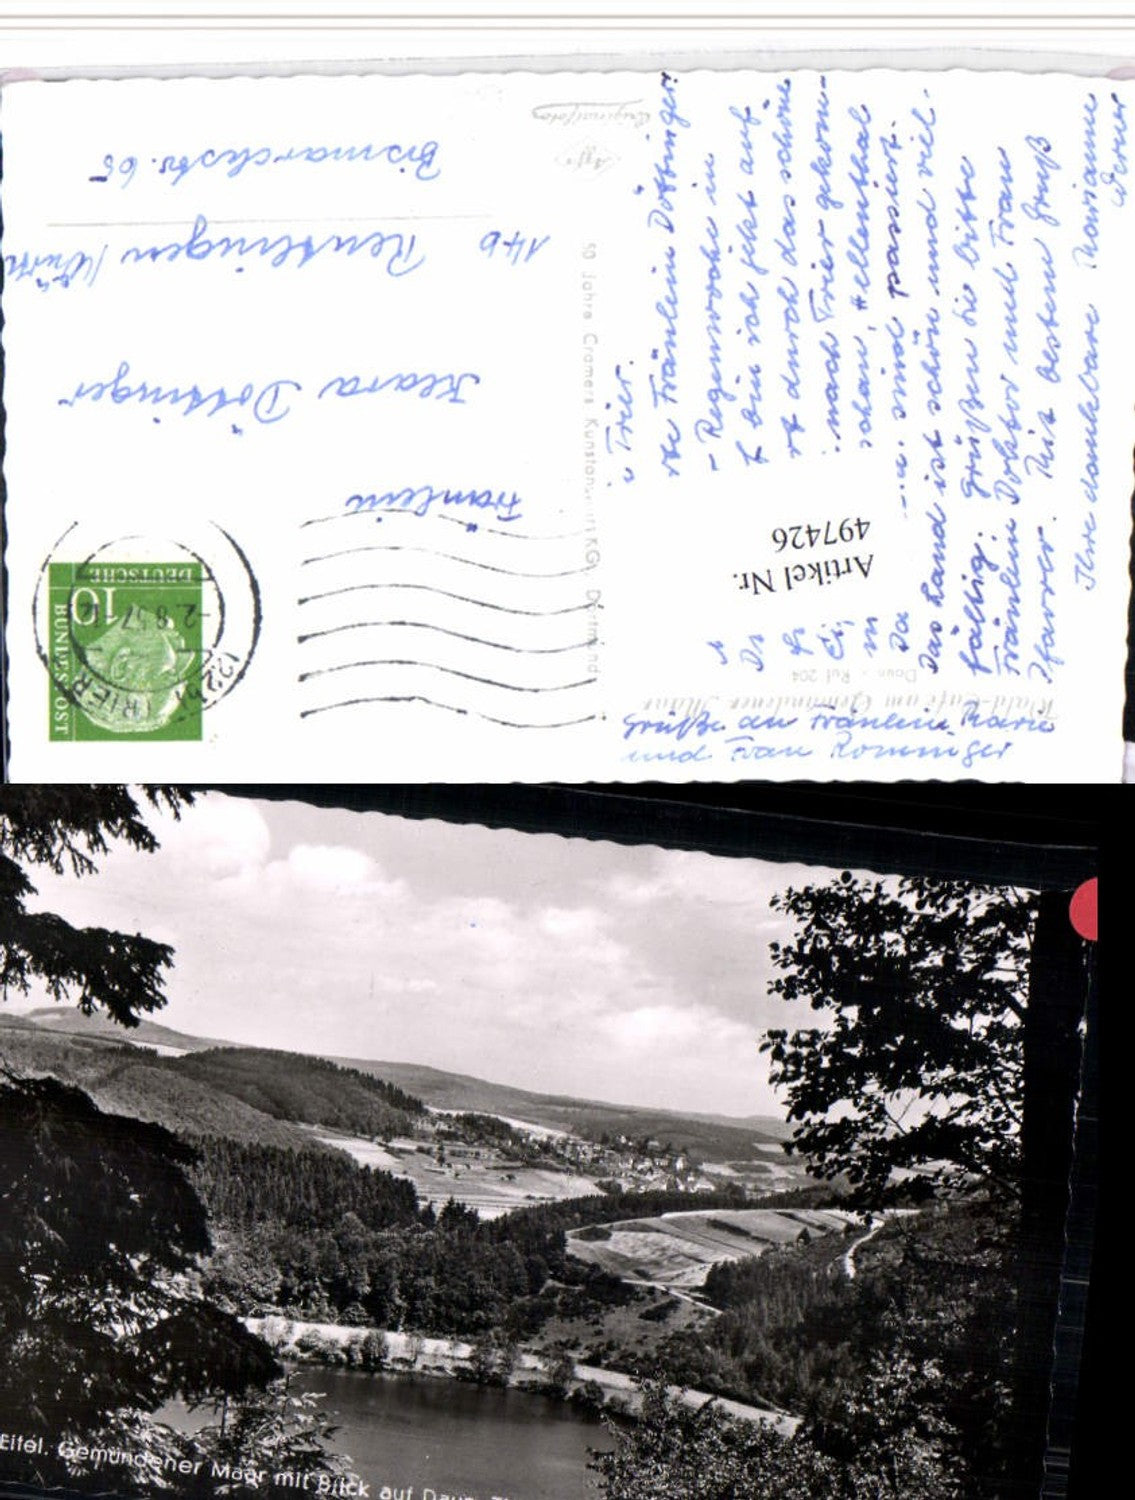 Fräulein
Klara Döttinger
14b Reutlingen /Württ
Bismarckstr. 65
DEUTSCHE
BUNDESPOST
10
TRIER
-2.8.57-12
Originalfoto
Agfa
50 Jahre Cramers Kunstanstalt KG., Dortmund
Wald-Café am Gemündener Maar
Daun - Ruf 204
Artikel Nr.
497426
Trier.
Fräulein Döttinger!
Regenwoche in
bin ich jetzt auf
durch das schöne
nach Trier gekom-
schon, Hellenthal
sind passiert.
Das Land ist schön und viel-
fältig. Grüßen Sie bitte
Fräulein Doktor und Frau
Pfarrer. Mit bestem Gruß
Ihre dankbare Marianne
Werner
Grüße an Fräulein Marie
und Frau Romminger
Eifel. Gemündener Maar mit Blick auf Daun